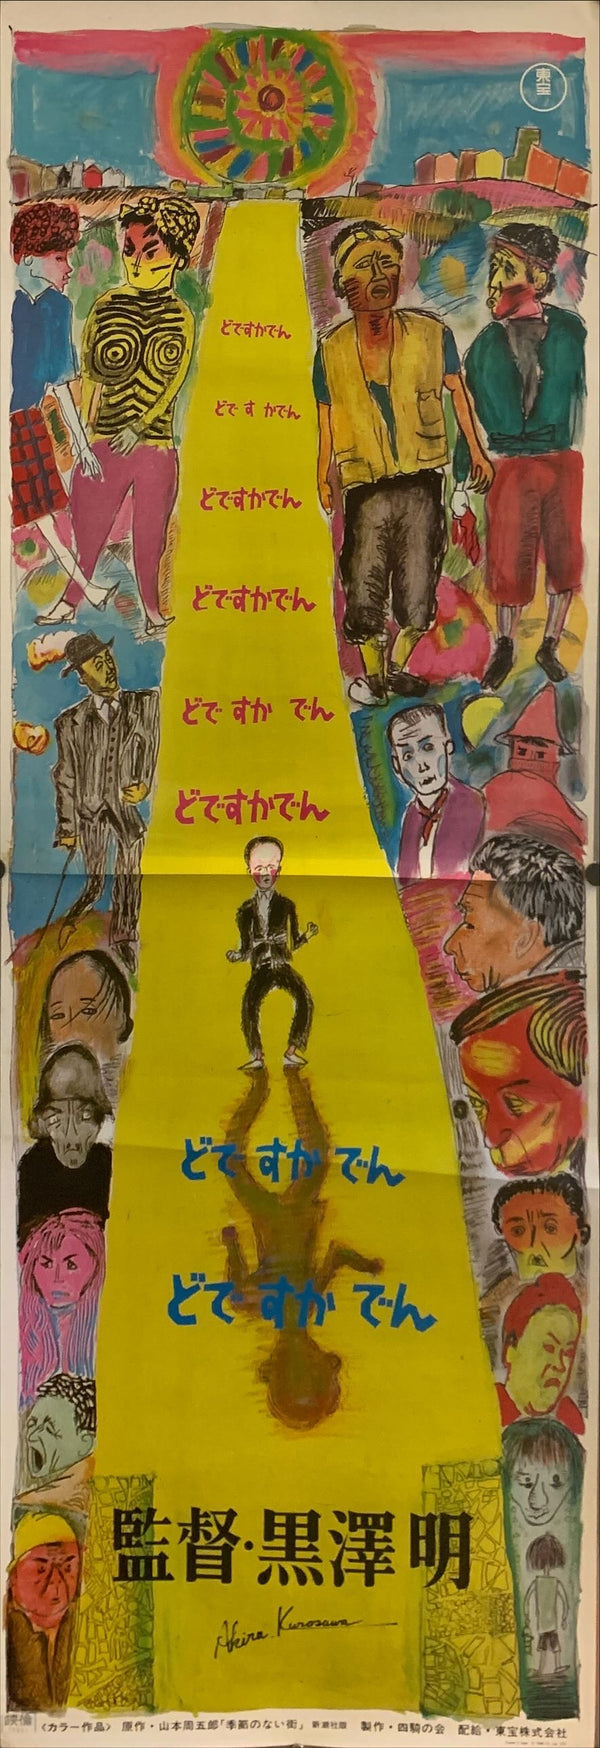 東宝
どですかでん
どですかでん
どですかでん
どですかでん
どですかでん
どですかでん
どですかでん
どですかでん
監督・黒澤明
Akira Kurosawa
映倫
〈カラー作品〉 原作・山本周五郎「季節のない街」新潮社版 製作・四騎の会 配給・東宝株式会社